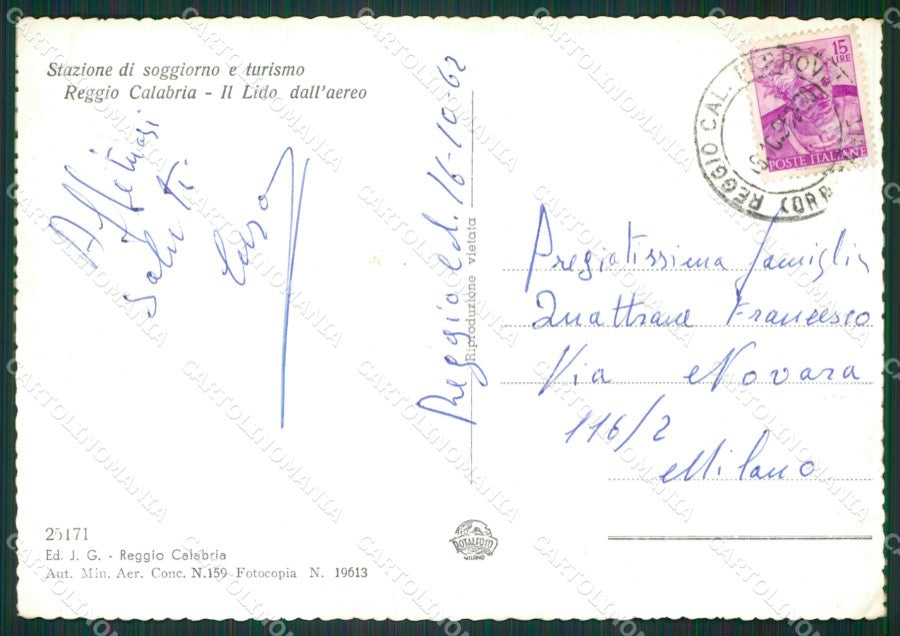 Stazione di soggiorno e turismo
Reggio Calabria - Il Lido dall'aereo
Affettuosi
saluti
Reggio Cal. 16-10-62
Riproduzione vietata
15
LIRE
POSTE ITALIANE
REGGIO CAL.
Pregiatissima famiglia
Quattrone Francesco
Via Novara
116/2
Milano
25171
Ed. J. G. - Reggio Calabria
Aut. Min. Aer. Conc. N.159 Fotocopia N. 19613
ROTALFOTO
MILANO
CARTOLINOMANIA